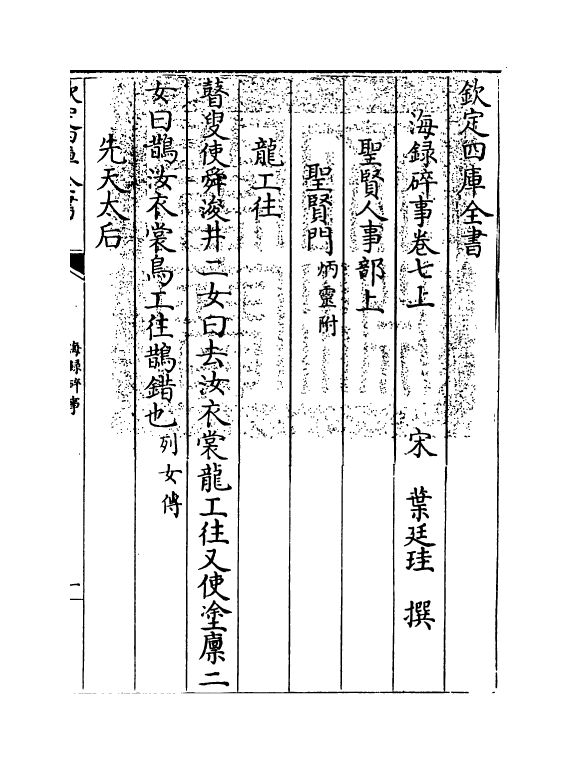 欽定四庫全書
海録碎事卷七上　宋　葉廷珪　撰
聖賢人事部上
聖賢門炳靈附
龍工往
瞽叟使舜浚井二女曰去汝衣裳龍工往又使塗廪二
女曰鵲汝衣裳鳥工往鵲錯也列女傳
先天太后
海録碎事
一